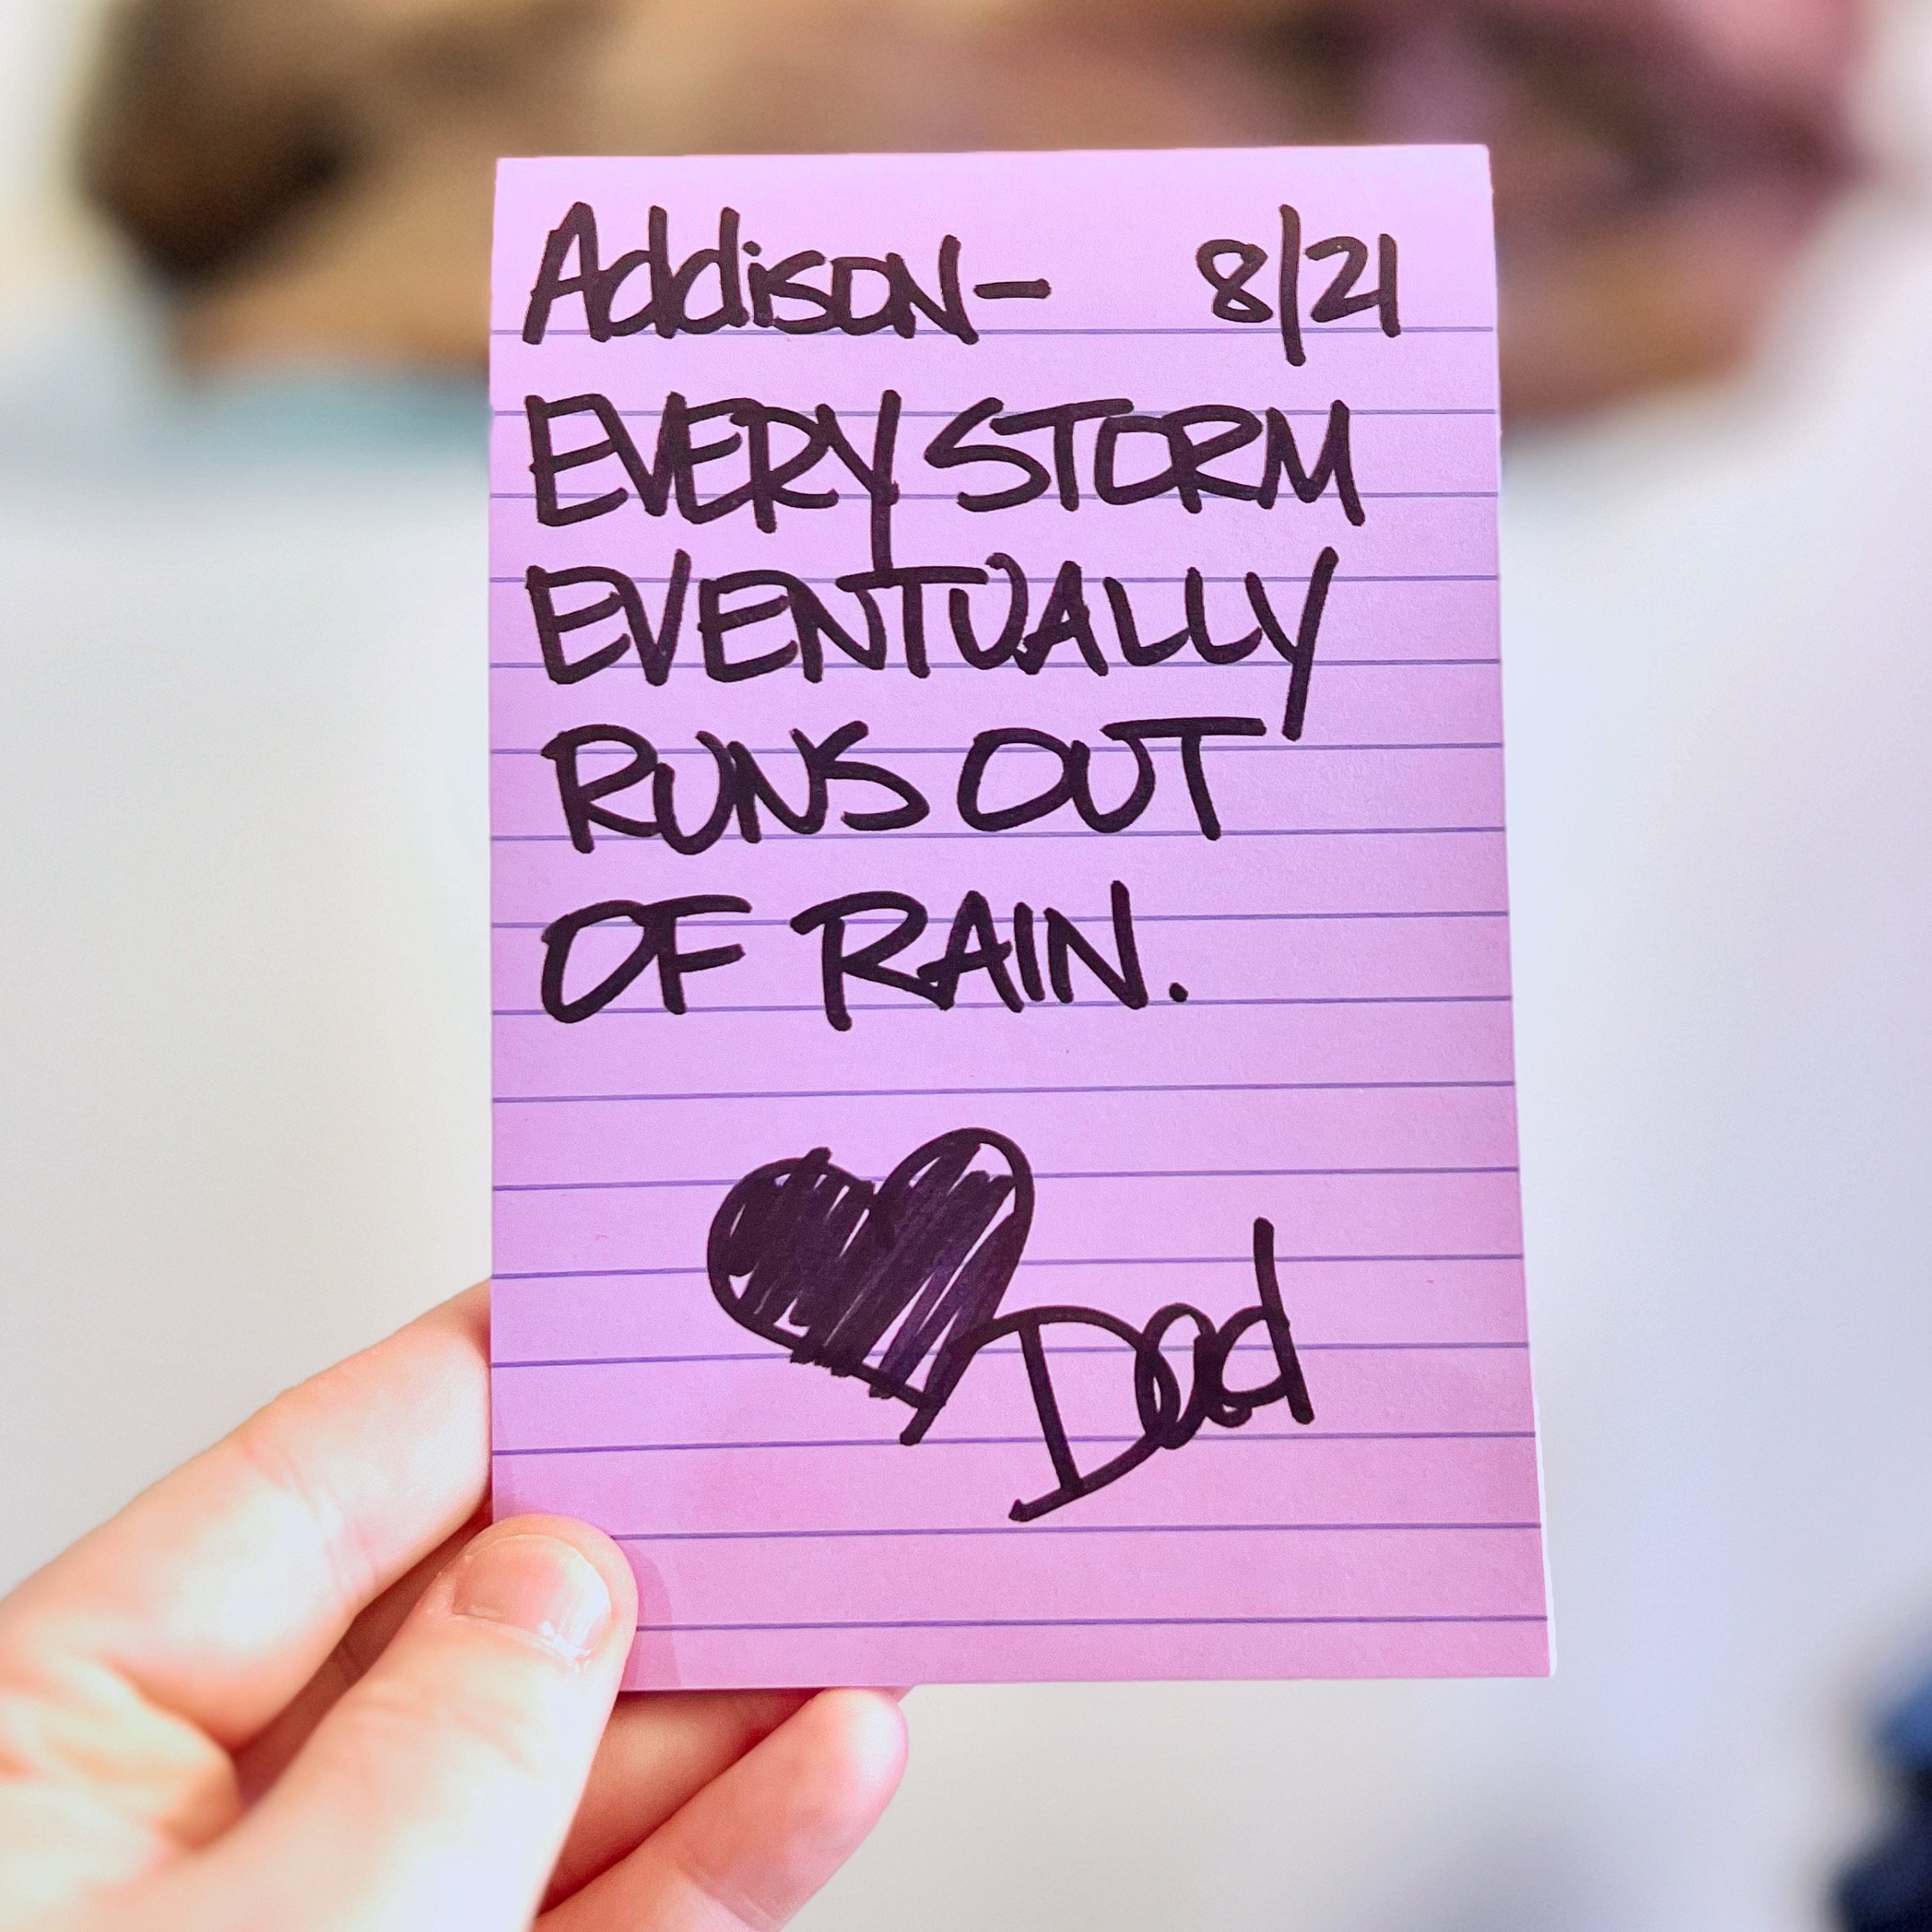 Addison- 8/21
EVERY STORM
EVENTUALLY
RUNS OUT
OF RAIN.
Dad